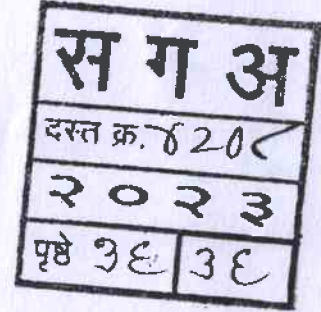 स ग अ
दस्त क्र. ४२०८
२०२३
पृष्ठे १६ ३६